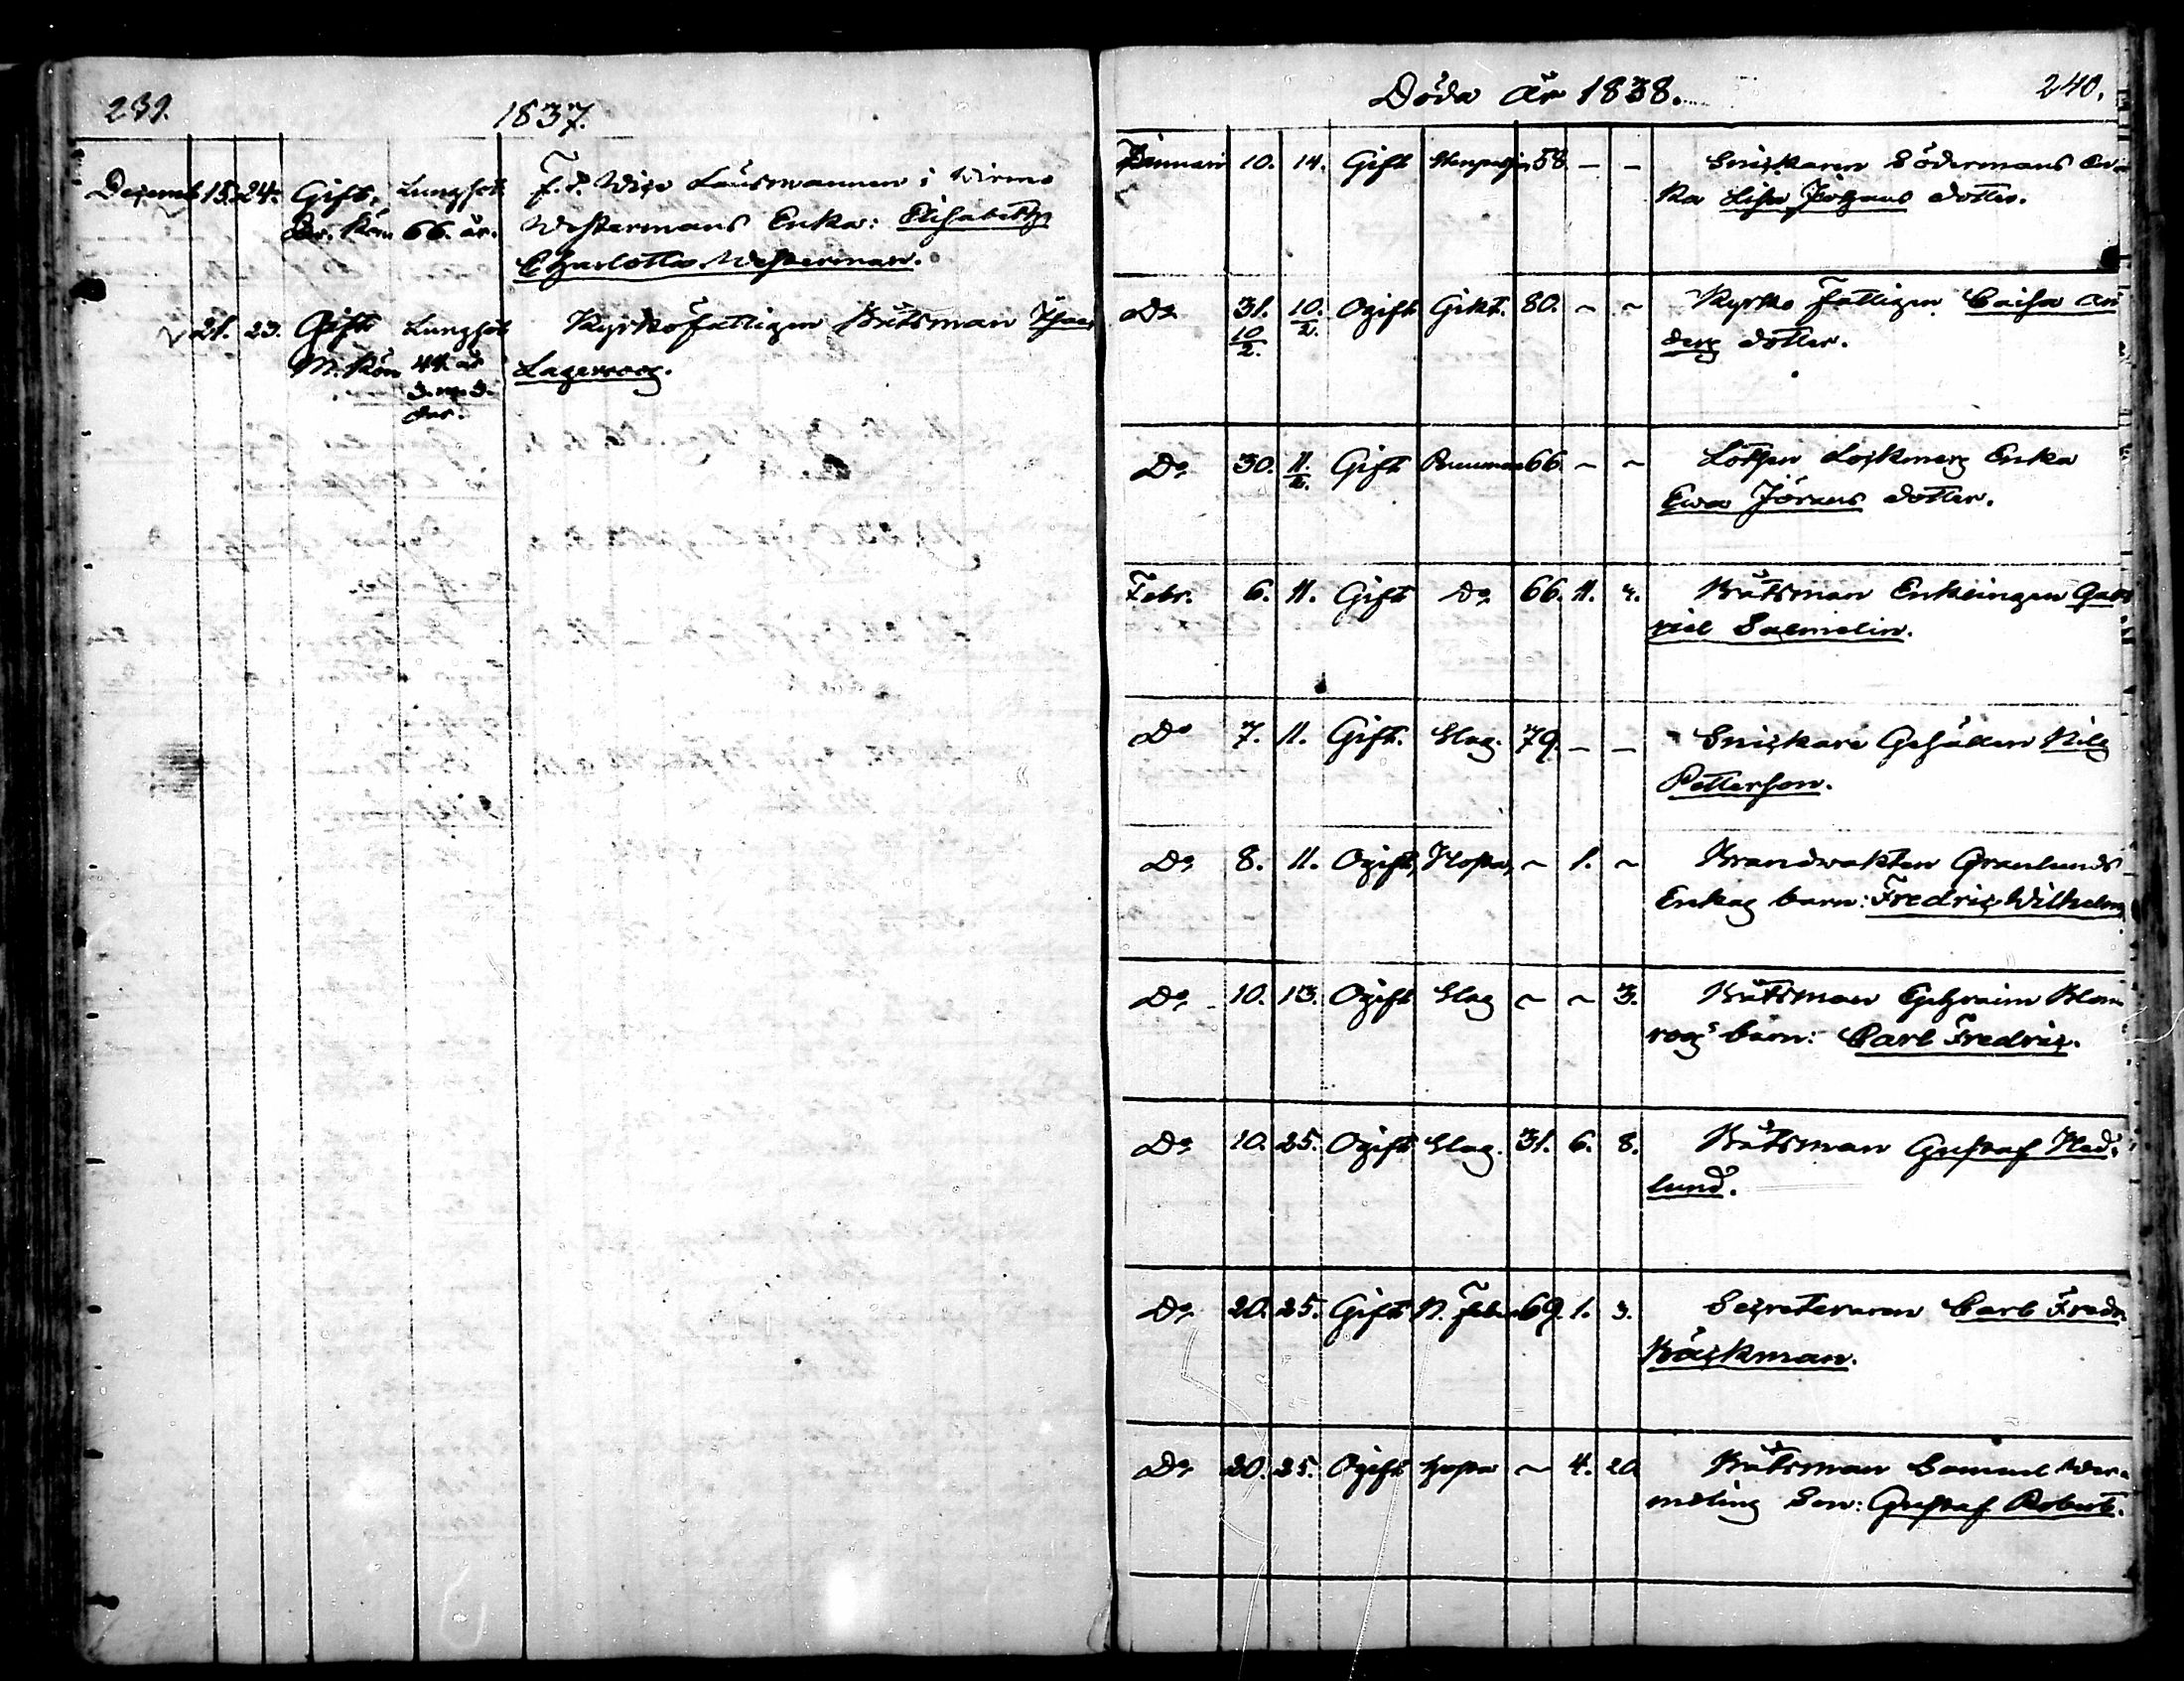 239.
1837.
Decemb. 15. 24. Gift, Lungsot f. d. Wice Länsmannen i Wirmo
Qv. Kön 66. år. Westermans Enka: Elisabeth
Charlotta Westerman.
21. 23. Gift Lungsot Kyrkofattigen Båtsman
M. Kön 44 år Lagerroos.
3. m. 3.
dar.
Döda År 1838.
240.
Januari 10. 14. Gift 58 — — Snickaren Södermans En-
ka Lisa Johans dotter.
Do 31. 10. Ogift Gikt. 80. ~ ~ Kyrko fattigen Caisa An
10/2. 2. ders dotter.
Do 30. 11. Gift 66. ~ ~ Lotsen Enka
2. Ewa Jörans dotter.
Febr. 6. 11. Gift Do 66. 11. 4. Båtsman Enklingen Gab
riel Salmelin.
Do 7. 11. Gift. Slag. 79. — — Snickare Gesällen Nils
Petterson.
Do 8. 11. Ogift, ~ 1. ~ Brandwakten Granlunds
Enkas barn: Fredric Wilhelm
Do 10. 13. Ogift Slag ~ ~ 3. Båtsman Ephraim Blom
roos barn: Carl Fredric.
Do 10. 25. Ogift Slag. 31. 6. 8. Båtsman Gustaf Hed-
lund.
Do 20. 25. Gift N. feber 69. 1. 3. Secreteraren Carl Fredr.
Bäckman.
Do 20. 25. Ogift Hosta ~ 4. 20 Båtsman Samuel Wer-
meling Son: Gustaf Robert.